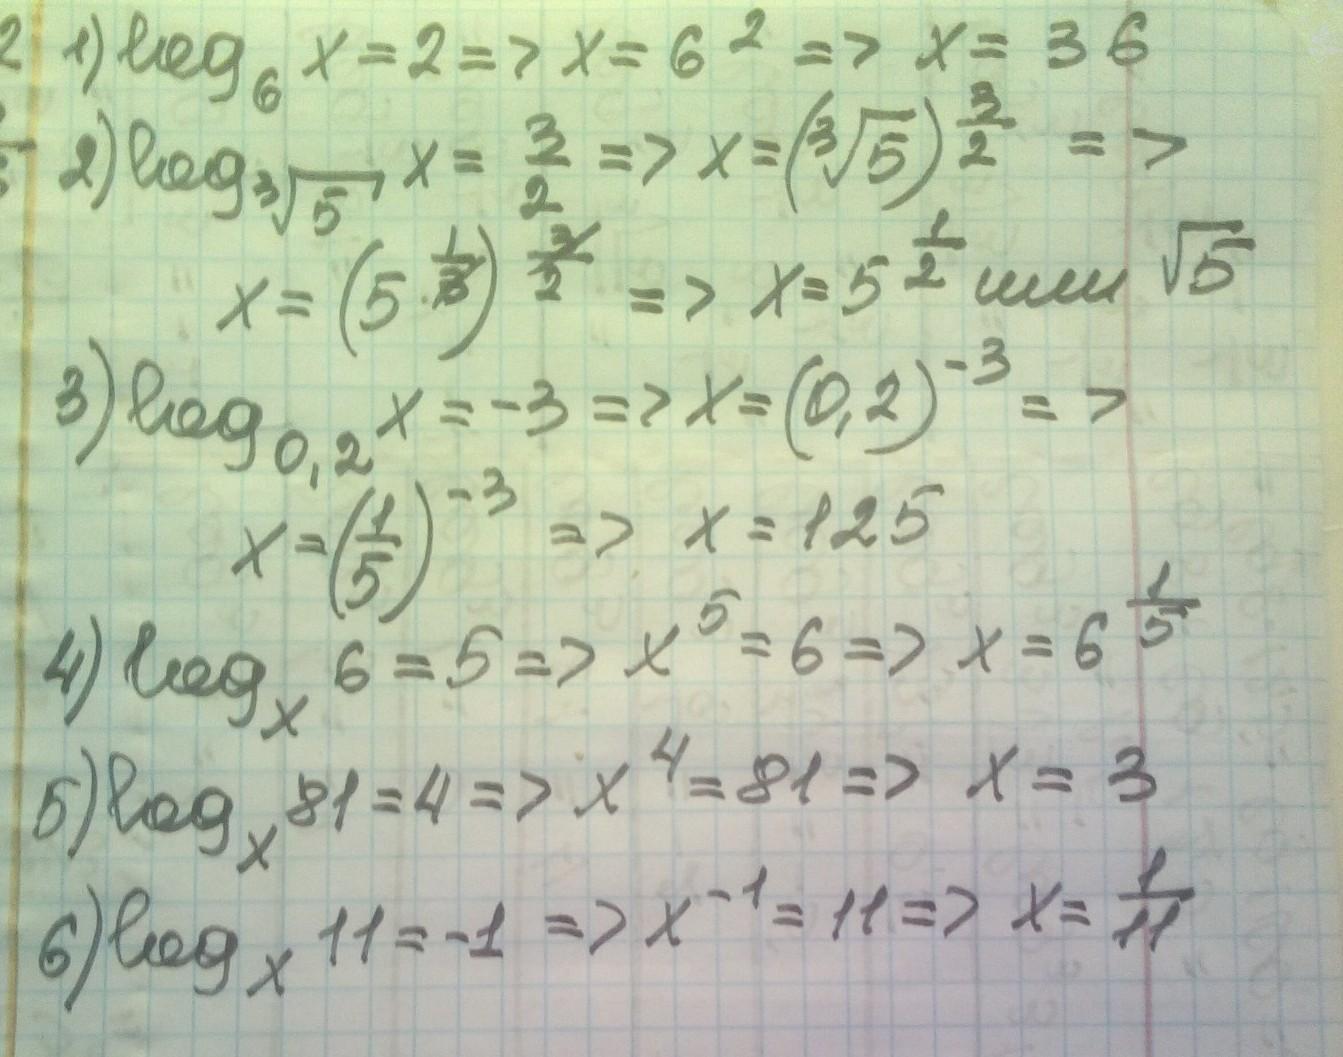 1) log₆ x = 2 => x = 6² => x = 36
2) log_∛5 x = 3/2 => x = (∛5)^(3/2) =>
x = (5^(1/3))^(3/2) => x = 5^(1/2) или √5
3) log₀,₂ x = -3 => x = (0,2)⁻³ =>
x = (1/5)⁻³ => x = 125
4) logₓ 6 = 5 => x⁵ = 6 => x = 6^(1/5)
5) logₓ 81 = 4 => x⁴ = 81 => x = 3
6) logₓ 11 = -1 => x⁻¹ = 11 => x = 1/11